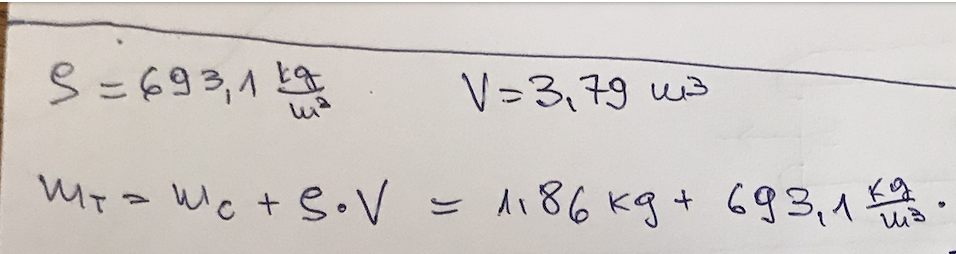 ρ = 693,1 kg/m³ V = 3,79 m³
m_T = m_C + ρ · V = 1,86 kg + 693,1 kg/m³ ·